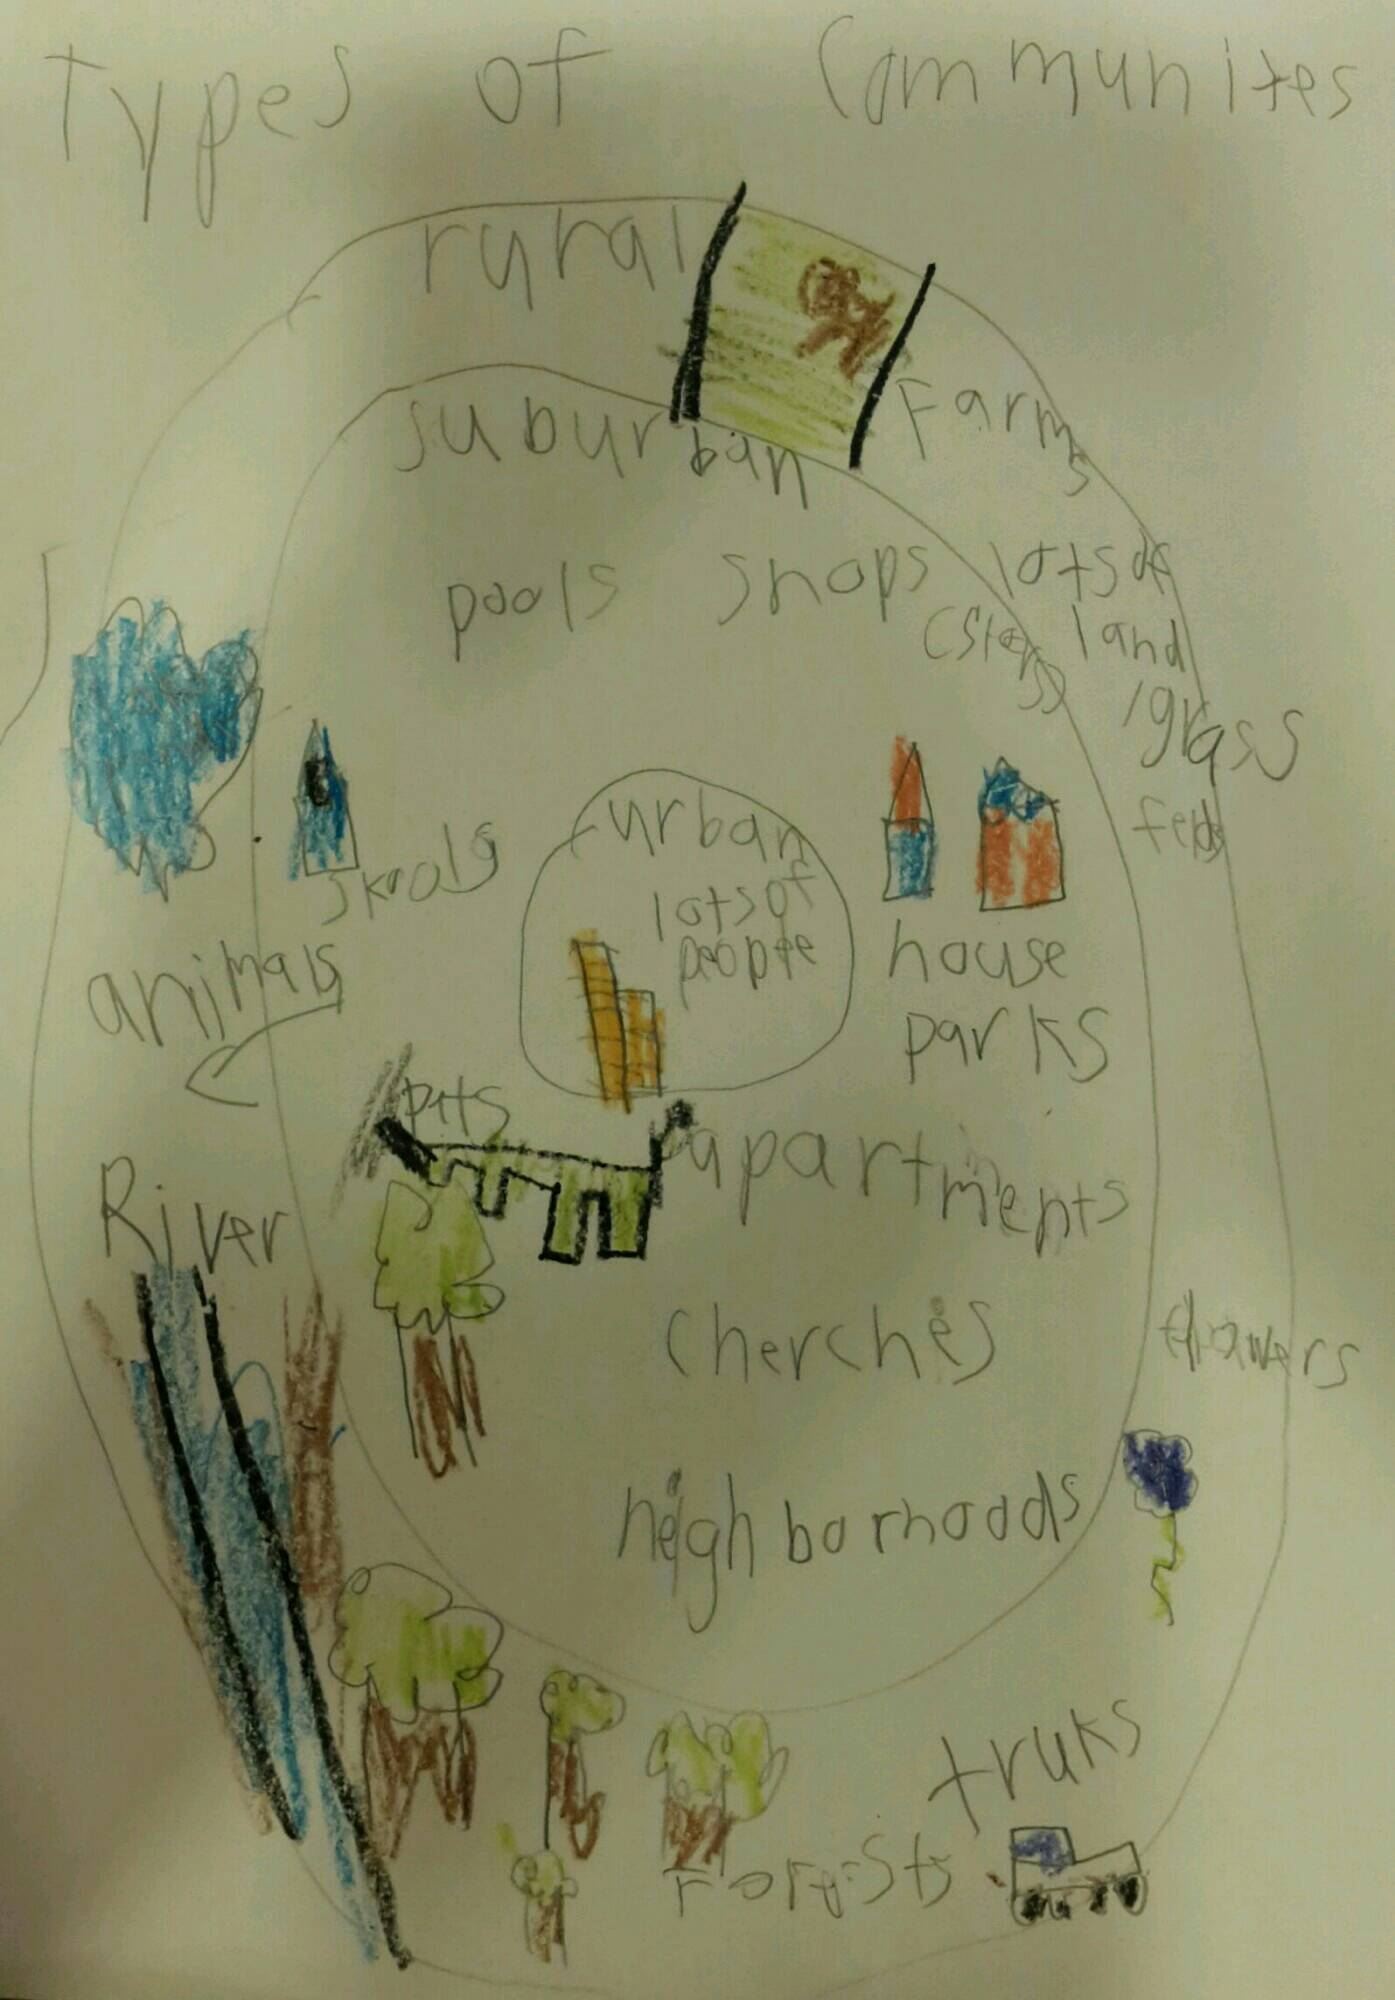 Types of Communites
rural
Farms
suburban
pools shops
(stors)
lots of
land
/grass
felds
skools
urban
lots of
people
house
parks
animals
pets
apartments
River
cherches
flowers
neighborhoods
truks
Forests